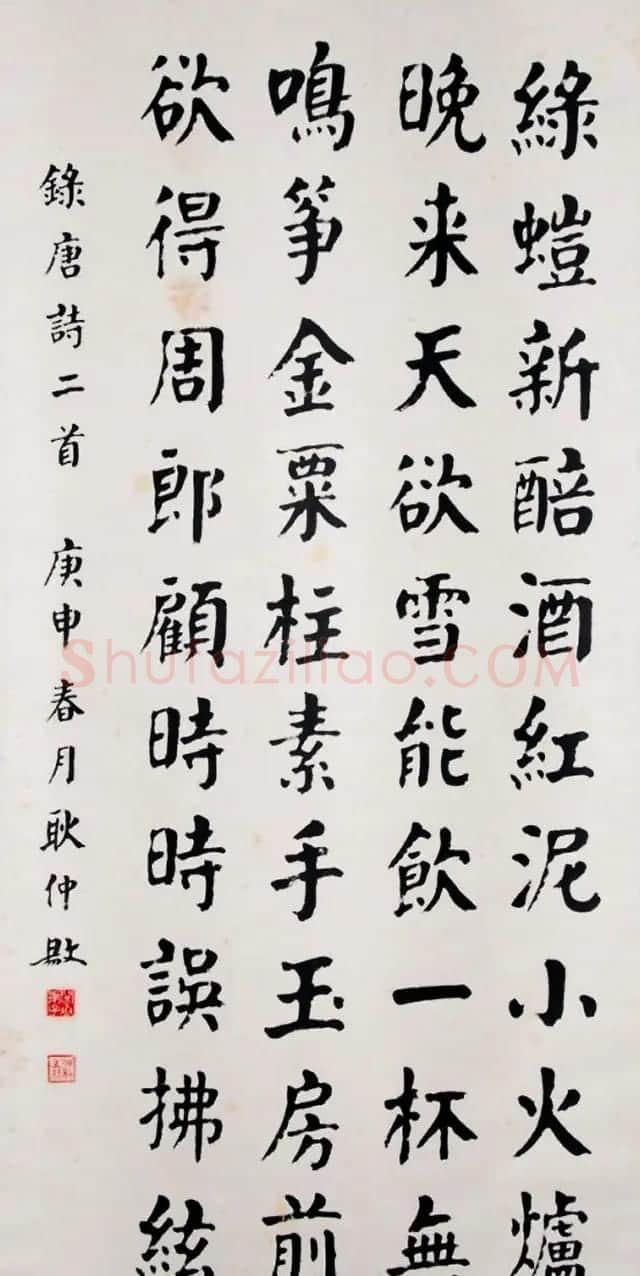 綠螘新醅酒紅泥小火爐
晚来天欲雪能飲一杯無
鳴筝金粟柱素手玉房前
欲得周郎顧時時誤拂絃
錄唐詩二首 庚申春月耿仲敭
Shufaziliao.COM